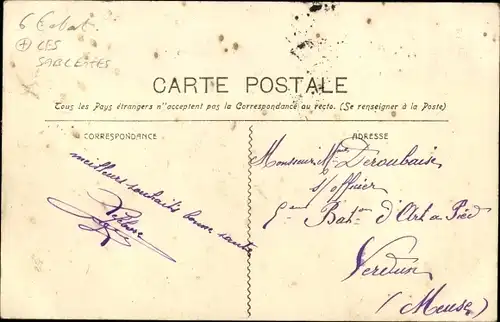 6 Eclat
LES
SABLETTES
CARTE POSTALE
Tous les Pays étrangers n'acceptent pas la Correspondance au recto. (Se renseigner à la Poste)
CORRESPONDANCE
meilleurs souhaits bonne santé
ADRESSE
Monsieur Deroubaise
s/officier
5eme Baton d'Art à Pied
Verdun
(Meuse)